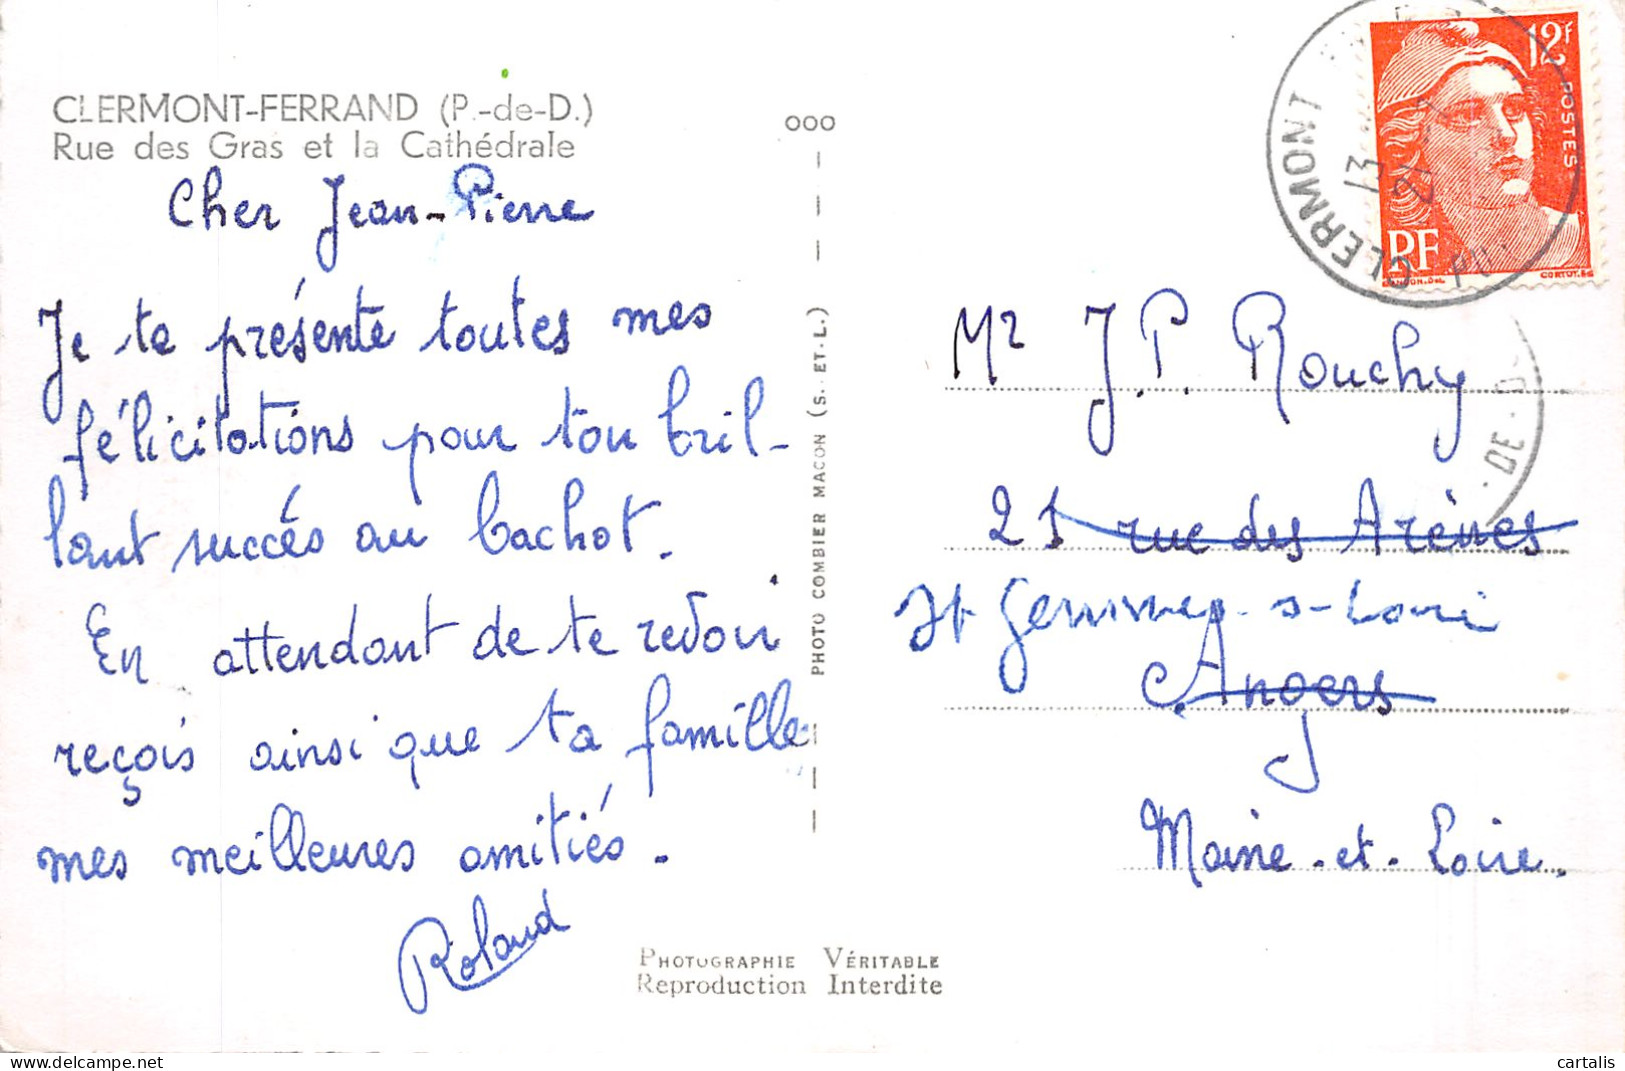 CLERMONT-FERRAND (P.-de-D.)
Rue des Gras et la Cathédrale
Cher Jean-Pierre
Je te présente toutes mes
félicitations pour ton bril-
lant succés au bachot.
En attendant de te revoir
reçois ainsi que ta famille
mes meilleures amitiés.
Roland
ooo
PHOTO COMBIER MACON (S. ET-L.)
PHOTOGRAPHIE VÉRITABLE
Reproduction Interdite
12F
POSTES
RF
GANDON.DEL
CORTOT.SC
CLERMONT
-DE-D
Mr J.P. Rouchy
21 rue des Arènes
St Gemmes-s-Loire
Angers
Maine-et-Loire.
cartalis